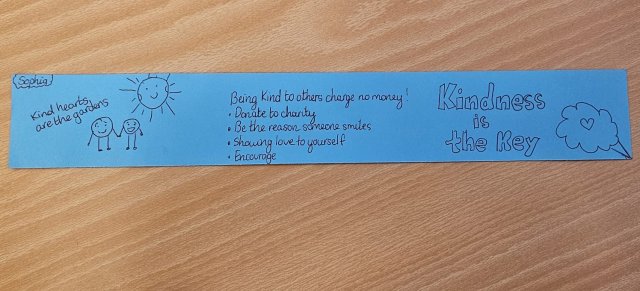 Sophia
Kind hearts
are the gardens
Being Kind to others charge no money!
• Donate to charity
• Be the reason someone smiles
• Showing love to yourself
• Encourage
Kindness
is
the Key